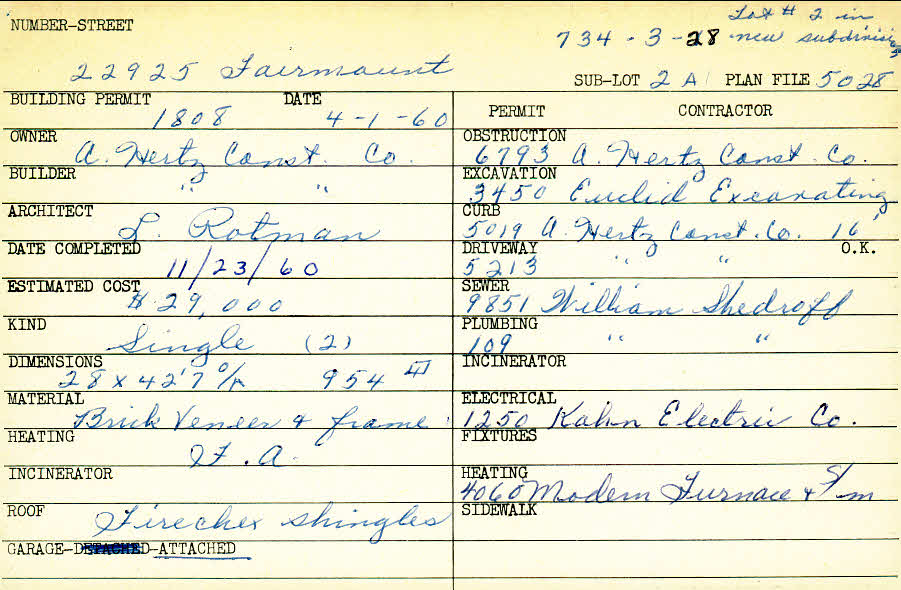 NUMBER-STREET
Lot # 2 in
734-3-28 new subdivision
22925 Fairmount
SUB-LOT 2 A PLAN FILE 5028
BUILDING PERMIT DATE
1808 4-1-60
OWNER
A. Hertz Const. Co.
BUILDER
" "
ARCHITECT
L. Rotman
DATE COMPLETED
11/23/60
ESTIMATED COST
$ 29,000
KIND
Single (2)
DIMENSIONS
28 x 42'7 o/a 954
MATERIAL
Brick Veneer & frame
HEATING
F.A.
INCINERATOR
ROOF Firechex shingles
GARAGE-DETACHED-ATTACHED
PERMIT CONTRACTOR
OBSTRUCTION
6793 A. Hertz Const. Co.
EXCAVATION
3450 Euclid Excavating
CURB
5019 A. Hertz Const. Co. 16'
DRIVEWAY O.K.
5213 " "
SEWER
9851 William Shedroff
PLUMBING
109 " "
INCINERATOR
ELECTRICAL
1250 Kahn Electric Co.
FIXTURES
HEATING
4060 Modern Furnace & S/m
SIDEWALK